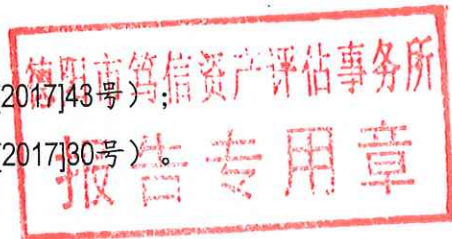 德阳市笃信资产评估事务所
2017]43号）；
2017]30号）。
报告专用章